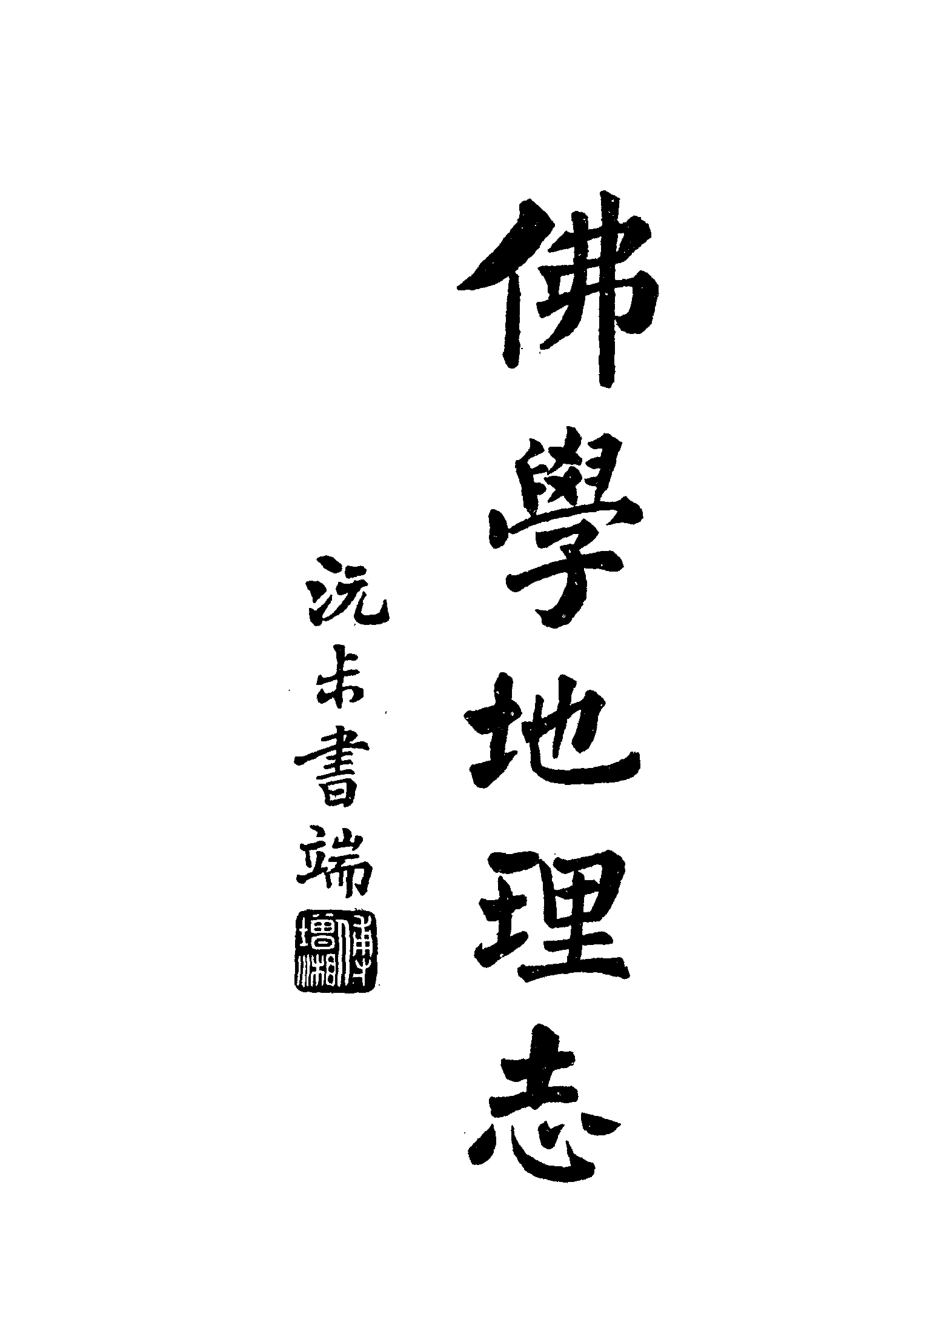 佛學地理志
沅尗書端
傅增湘